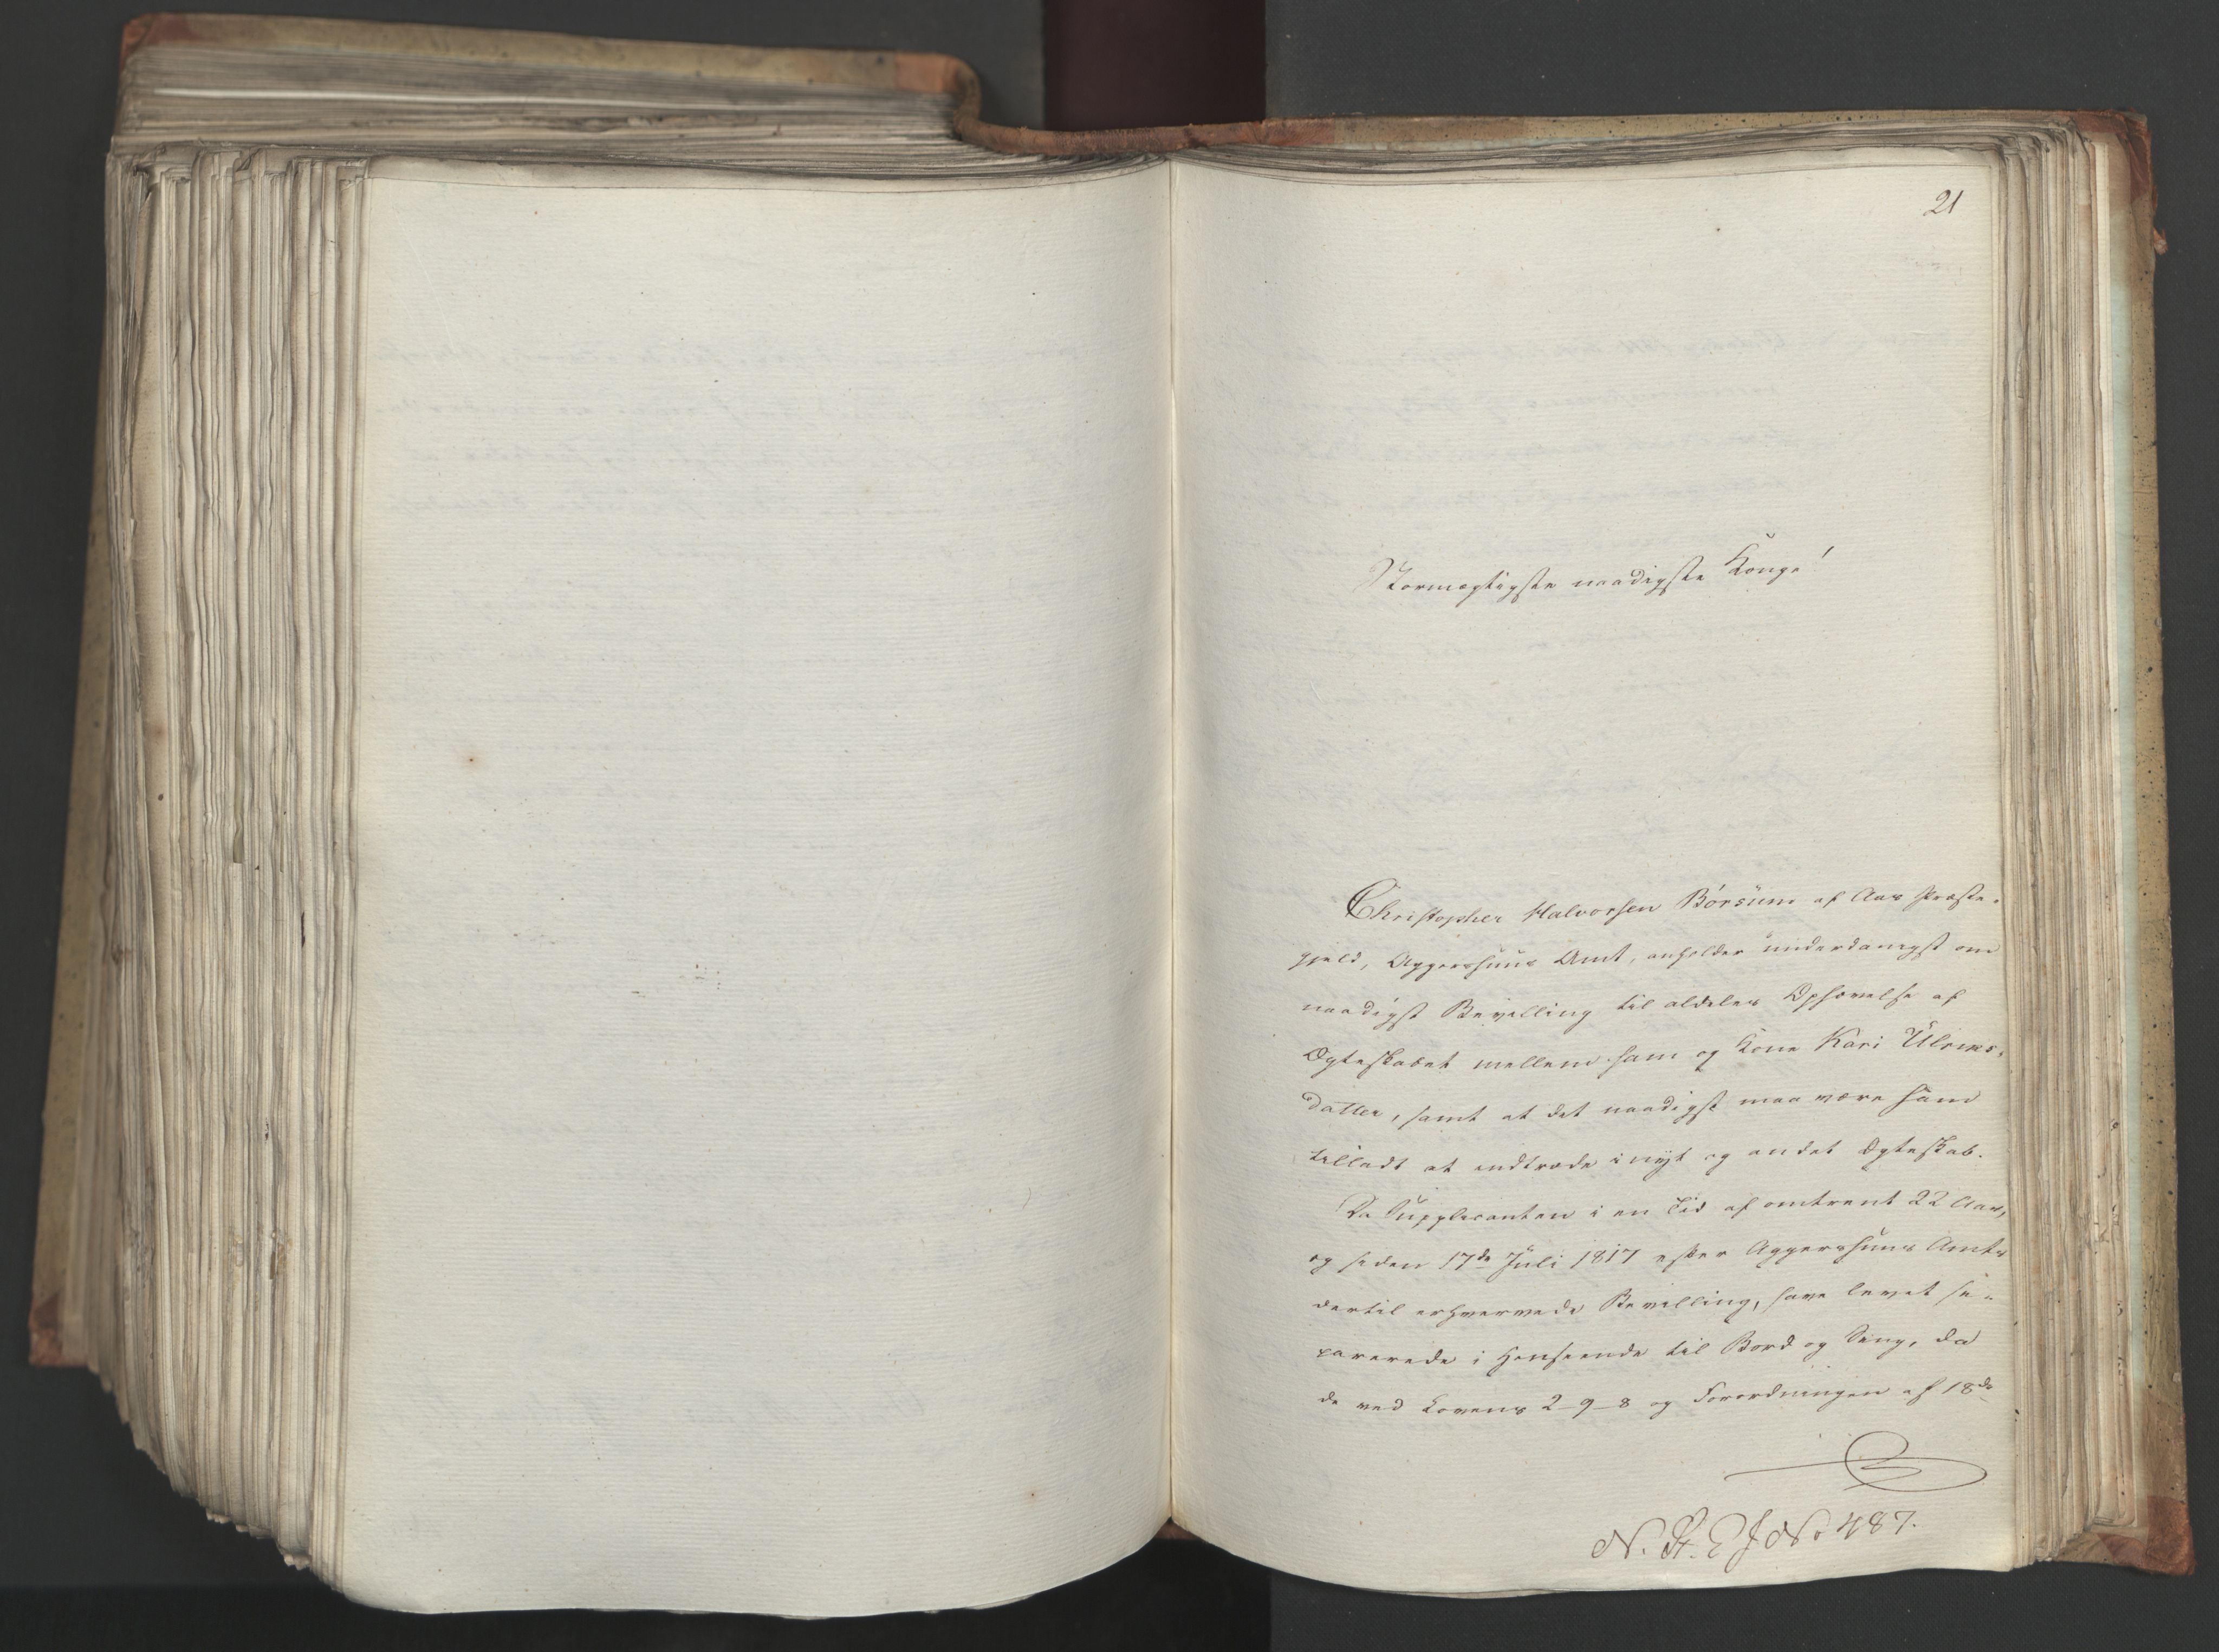 21
Stormægtigste naadigste Konge!
Christopher Halvorsen Börsum af Aas Præste-
gjeld, Aggershuus Amt, anholder underdanigst om
naadigst Bevilling til aldeles Ophævelse af
Ægteskabet mellem ham og Kone Kari Ulriks-
datter, samt at det naadigst maa være ham
tilladt at indtræde i nyt og andet Ægteskab.
Da Supplicanten i en Tid af omtrent 22 Aar,
og siden 17de Juli 1817 efter Aggershuus Amts
dertil erhvervede Bevilling, have levet se-
parerede i Henseende til Bord og Seng, da
de ved Lovens 2-9-8 og Forordningen af 18de
No 487.